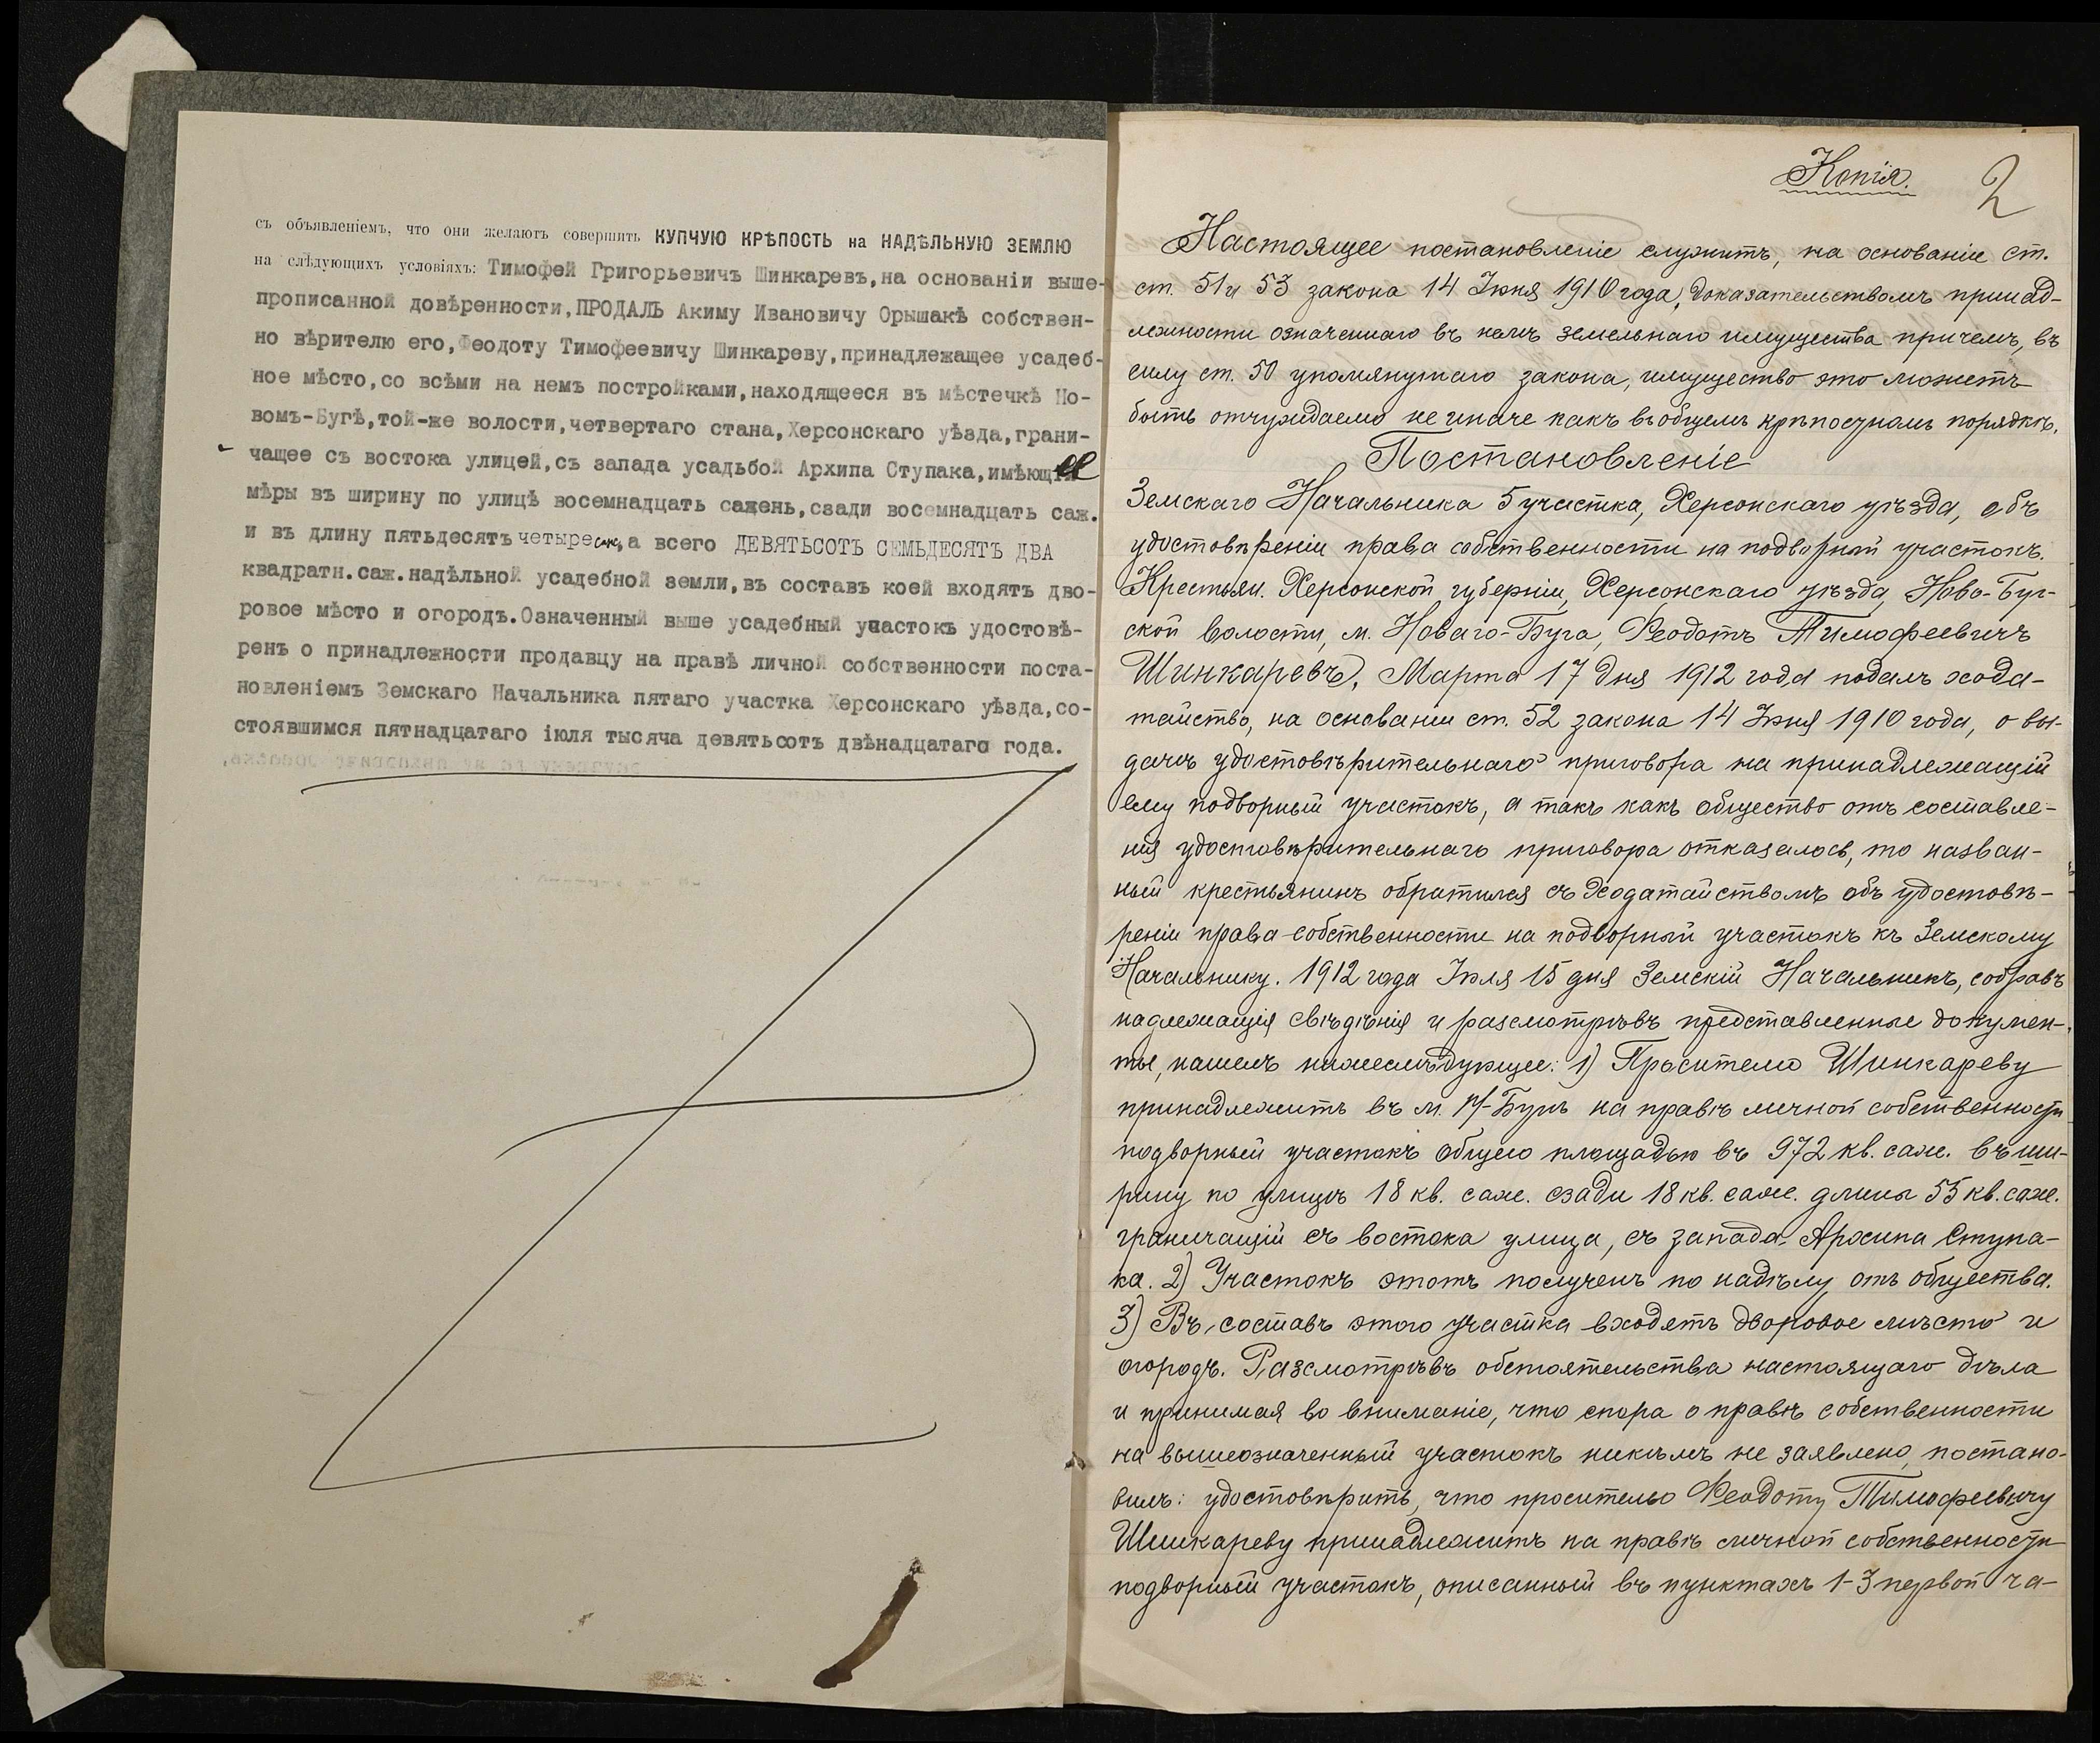 съ объявленіемъ, что они желаютъ совершить КУПЧУЮ КРѢПОСТЬ на НАДѢЛЬНУЮ ЗЕМЛЮ
на слѣдующихъ условіяхъ: Тимофей Григорьевичъ Шинкаревъ, на основаніи выше-
прописанной довѣренности, ПРОДАЛЪ Акиму Ивановичу Орышакѣ собствен-
но вѣрителю его, Феодоту Тимофеевичу Шинкареву, принадлежащее усадеб-
ное мѣсто, со всѣми на немъ постройками, находящееся въ мѣстечкѣ Но-
вомъ-Бугѣ, той-же волости, четвертаго стана, Херсонскаго уѣзда, грани-
чащее съ востока улицей, съ запада усадьбой Архипа Ступака, имѣющее
мѣры въ ширину по улицѣ восемнадцать сажень, сзади восемнадцать саж.
и въ длину пятьдесятъ четыре саж., а всего ДЕВЯТЬСОТЪ СЕМЬДЕСЯТЪ ДВА
квадратн. саж. надѣльной усадебной земли, въ составъ коей входятъ дво-
ровое мѣсто и огородъ. Означенный выше усадебный участокъ удостовѣ-
ренъ о принадлежности продавцу на правѣ личной собственности поста-
новленіемъ Земскаго Начальника пятаго участка Херсонскаго уѣзда, со-
стоявшимся пятнадцатаго іюля тысяча девятьсотъ двѣнадцатаго года.
Копія.
2
Настоящее постановленіе служитъ, на основаніи ст.
ст. 51 и 53 закона 14 Іюня 1910 года, доказательствомъ принад-
лежности означеннаго въ немъ земельнаго имущества причемъ, въ
силу ст. 50 упомянутаго закона, имущество это можетъ
быть отчуждаемо не иначе какъ въ общемъ крѣпостномъ порядкѣ.
Постановленіе
Земскаго Начальника 5 участка, Херсонскаго уѣзда, объ
удостовѣреніи права собственности на подворный участокъ.
Крестьян. Херсонской губерніи, Херсонскаго уѣзда, Ново-Буг-
ской волости, м. Новаго-Буга, Феодотъ Тимофеевичъ
Шинкаревъ, Марта 17 дня 1912 года подалъ хода-
тайство, на основаніи ст. 52 закона 14 Іюня 1910 года, о вы-
дачѣ удостовѣрительнаго приговора на принадлежащій
ему подворный участокъ, а такъ какъ общество отъ составле-
нія удостовѣрительнаго приговора отказалось, то назван-
ный крестьянинъ обратился съ ходатайствомъ объ удостовѣ-
реніи права собственности на подворный участокъ къ Земскому
Начальнику. 1912 года Іюля 15 дня Земскій Начальникъ, собравъ
надлежащія свѣдѣнія и разсмотрѣвъ представленные докумен-
ты, нашелъ нижеслѣдующее: 1) Просителю Шинкареву
принадлежитъ въ м. Н-Бугѣ на правѣ личной собственности
подворный участокъ общею площадью въ 972 кв. саж. въ ши-
рину по улицѣ 18 кв. саж. сзади 18 кв. саж. длины 55 кв. саж.
граничащій съ востока улица, съ запада Архипа Ступа-
ка. 2) Участокъ этотъ полученъ по надѣлу отъ общества.
3) Въ составъ этого участка входятъ дворовое мѣсто и
огородъ. Разсмотрѣвъ обстоятельства настоящаго дѣла
и принимая во вниманіе, что спора о правѣ собственности
на вышеозначенный участокъ никѣмъ не заявлено, постано-
вилъ: удостовѣрить, что просителю Феодоту Тимофеевичу
Шинкареву принадлежитъ на правѣ личной собственности
подворный участокъ, описанный въ пунктахъ 1-3 первой ча-